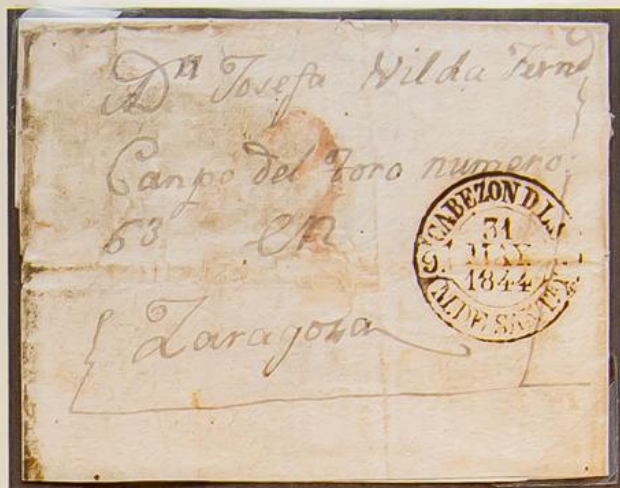 A Dª Josefa Vilda Fernd
Canpo del Toro numero
63 en
Zaragoza
CABEZON D LA
31
MAY
1844